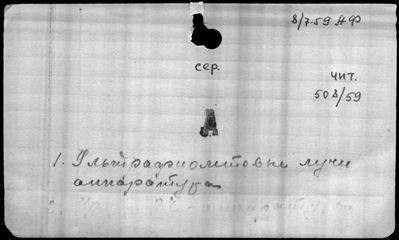 8/7.59 АФ
сер.
чит.
508/59
А
1. Ультрафиолетовые лучи
аппаратура
2.